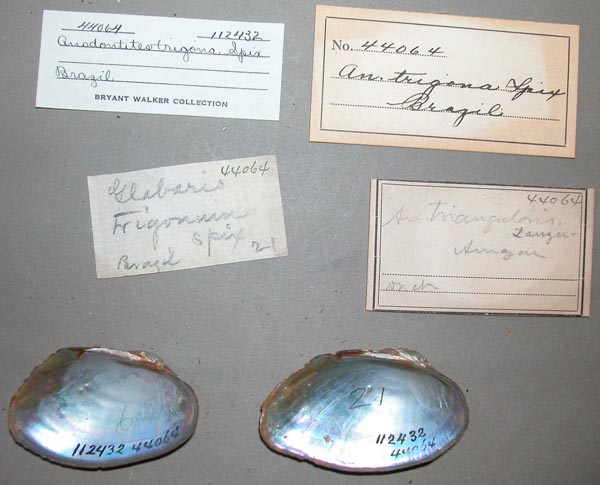 44064 112432
Anodontites trigona, Spix
Brazil
BRYANT WALKER COLLECTION
No. 44064
An. trigona Spix
Brazil
44064
Glabaris
trigonum
Spix
Brazil 21
44064
An. triangularis,
Amazon
6
112432 44064
21
112432
44064